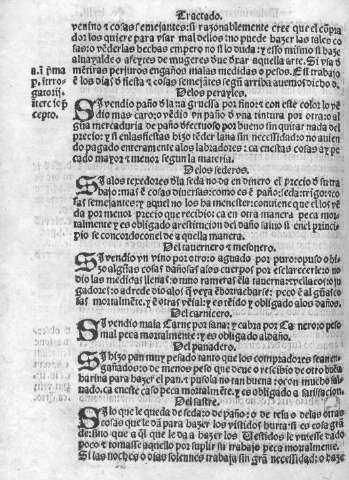 Tractado.
venino ⁊ cosas semejantes: si razonablemente cree que el cõpra
dor los quiere para vsar mal dellos: mo puede hazer las tales co
sas: o vẽderlas hechas empero no si lo duda: ⁊ esso mismo si haze
alhayalde o afeytes de mugeres que de arar aquella arte. Si vsa õ
mẽtiras perjuros engaños malas medidas o pesos. Et si trabajo
ẽ los dias õ fiesta ⁊ cosas semejãtes segũ arriba auemos dicho
De los perayles.
SI vendio paño õ lana gruessa por fino: ⁊ con este color lo vẽ
dio mas caro: o vẽdio vn paño õ vna tintura por otra: o al
guna mercaduria de paño defectuoso por bueno sin quitar nada del
precio: ⁊ si enlas fiestas hizo teder lana sin necessidad: o no auien
do pagado enteramente alos labradores: ca enestas cosas ay pe
cado mayor ⁊ menor segun la materia.
De los sederos.
SI alos texedores dla seda no da en dinero el precio õ su tra
bajo: mas ẽ cosas diuersas: como es ẽ paño: seda: trigo: ⁊ co
sas semejantes: ⁊ aquel no los ha menester: conuiene que el los vẽ
da por menos precio que recibio: ca en otra manera peca mor
talmente: ⁊ es obligado a restitucion del daño saluo si en el princi
pio se concordo con el de aquella manera.
Del tauernero ⁊ mesonero.
SI vendio vn vino por otro: o aguado por puro: o puso o hi
zo algũas cosas dañosas alos cuerpos por esclarecerle: o no
dio las medidas llenas: o tuuo rameras ẽla tauerna: ⁊ vellacos: o ju
gadores: o adrede dio alos que veya ẽborracharse: peco ẽ algũas co
sas mortalmẽte: ⁊ ẽ otras venial: ⁊ es tenido ⁊ obligado alos daños.
Del carnicero.
SI vendio mala Carne por sana: ⁊ cabra por Carnero: o peso
mal peca mortalmente: ⁊ es obligado al daño.
Del panadero.
SI hizo pan muy pesado tanto que los compradores sean en
gañados: o de menos peso que deue o rescibio de otro buena
harina para hazer el pan. ⁊ puso la no tan buena: o con mucho sal
uado. ca eneste caso peca mortalmente. ⁊ es obligado a satisfacion.
Del sastre.
SI lo que le queda de seda: o de paño: o de tresa o delas otras
cosas que le dã para hazer los vestidos hurta: si es cosa grã
de: sino que a ql que le da a hazer los Vestidos le vuiesse dado
poco ⁊ tomasse aquello por suplir su trabajo peca mortalmente.
Si las noches o dias solennes trabaja sin grã necessidad: o haze